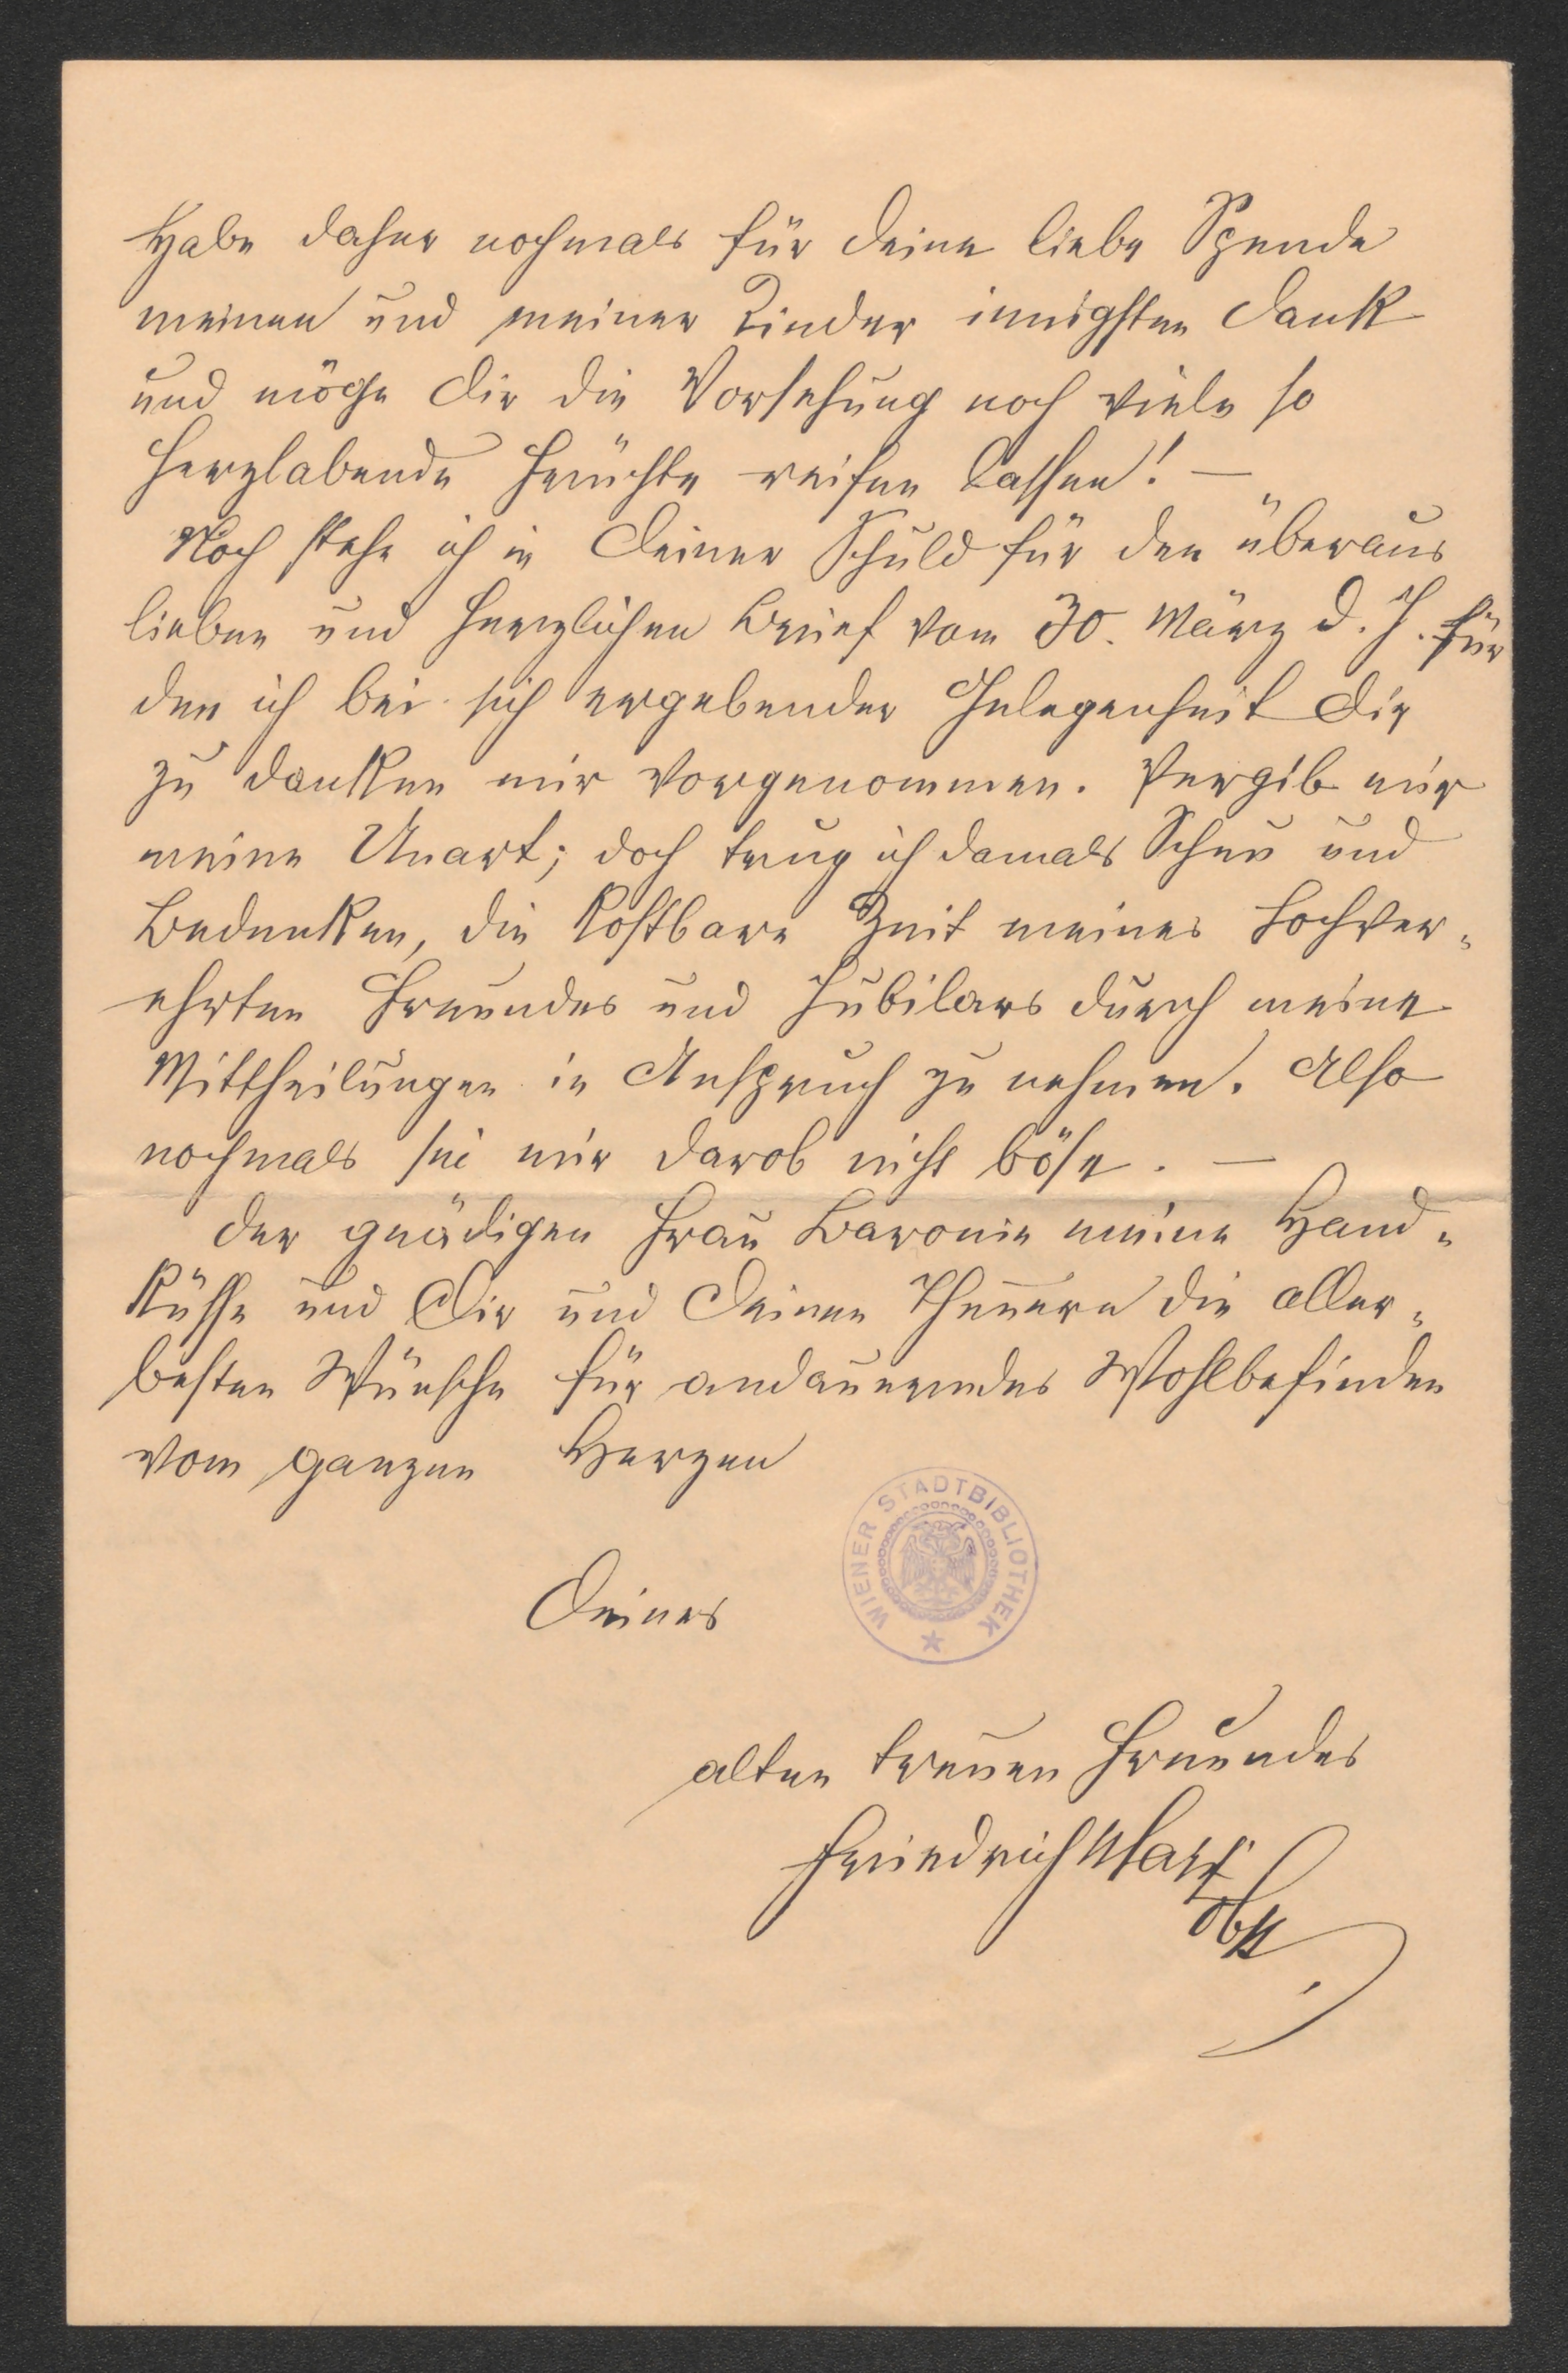 Habe daher nochmals für Deine liebe Spende
meinen und meiner Kinder innigsten Dank
und möge Dir die Vorsehung noch viele so
herzlabende Früchte reifen lassen! —
Noch stehe ich in Deiner Schuld für den überaus
lieben und herzlichen Brief vom 30. März d. J. für
den ich bei sich ergebender Gelegenheit Dir
zu danken mir vorgenommen. Vergib mir
meine Unart; doch trug ich damals Scheu und
Bedenken, die kostbare Zeit meines hochver„
ehrten Freundes und Jubilars durch meine
Mittheilungen in Anspruch zu nehmen. Also
nochmals sei mir darob nicht böse. —
Der gnädigen Frau Baronin meine Hand„
küsse und Dir und Deinen Theuern die aller„
besten Wünsche für andauerndes Wohlbefinden
vom ganzen Herzen
WIENER STADTBIBLIOTHEK
Deines
alten treuen Freundes
Friedrich
Obst